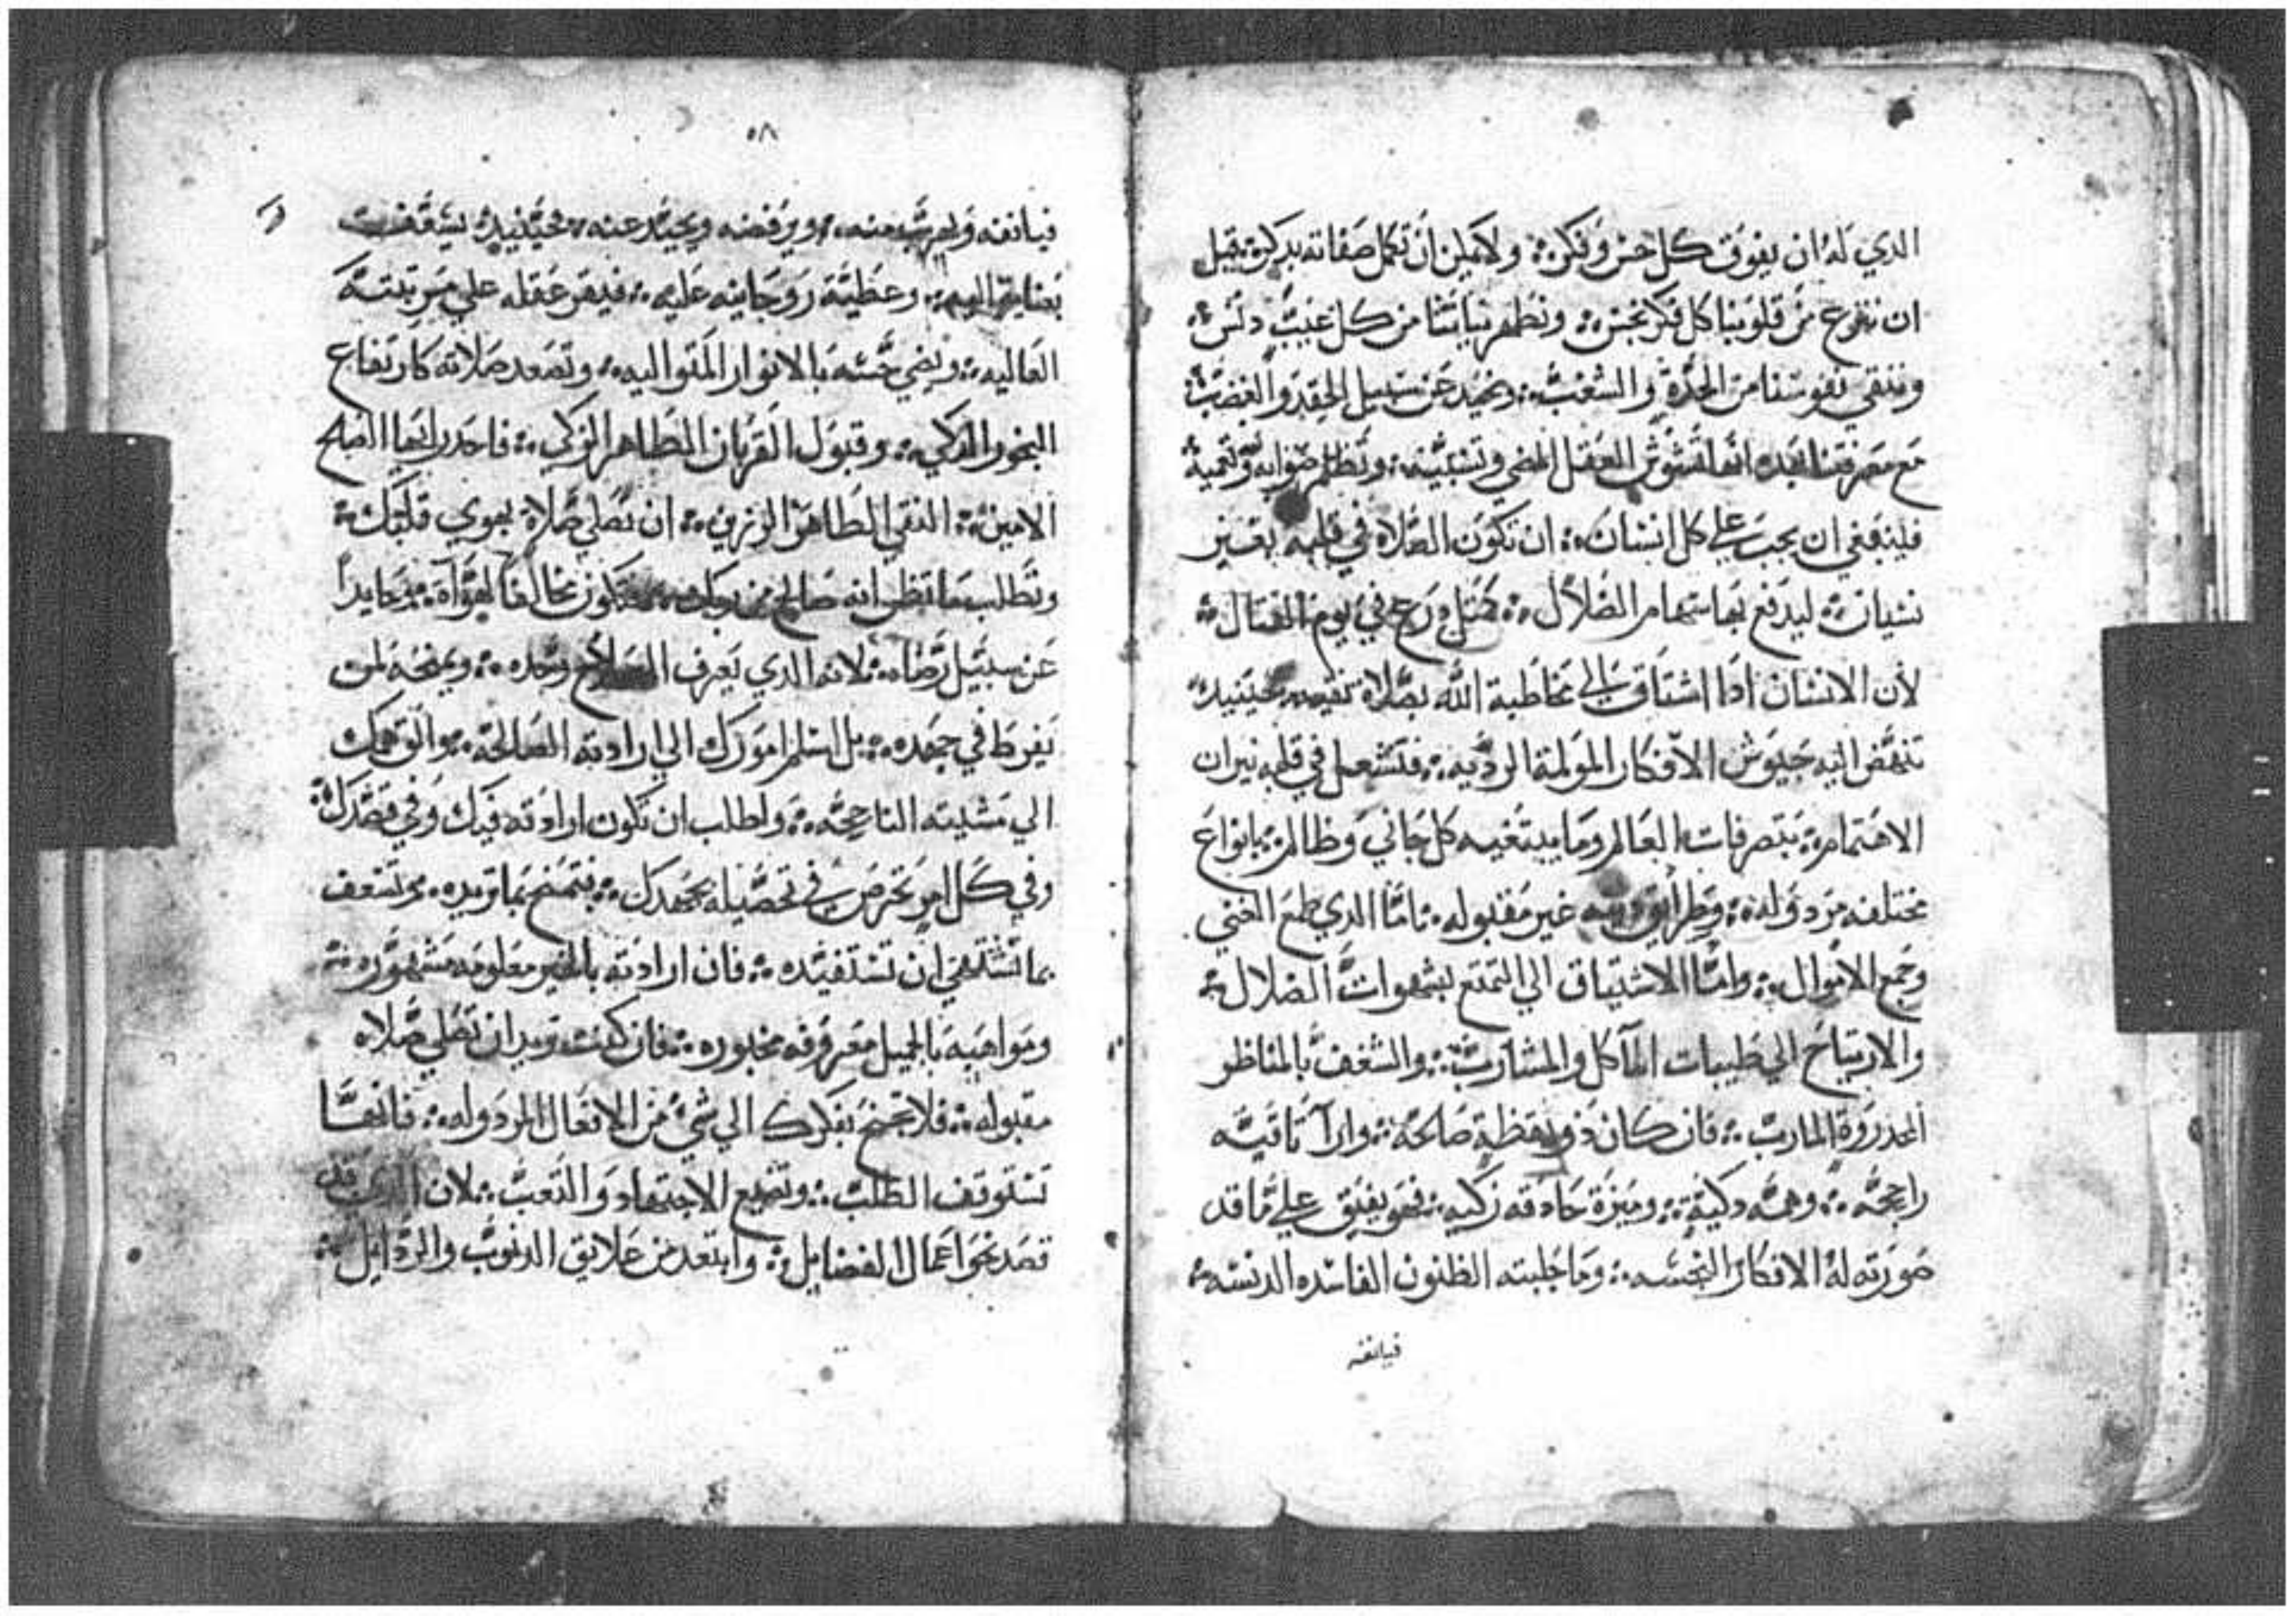 الدي له ان يفوق كل حس وفكر ولا يمكن ان تكمل صفاته بذكر قبل
ان نقرع من قلوبنا كل فكر نجس ونطهر نياتنا من كل عيب دنس
وننقي نفوسنا من الحدة والشغب ونحيد عن سبيل الحقد والغضب
مع معرفتنا انها تشوش العقل المضي وتظلم صوابه
فينبغي ان يجب علي كل انسان ان تكون الصلاه في قلبه بغير
نسيان ليدفع بها سهام الضلال كمثل درع في يوم القتال
لان الانسان ادا اشتاق الي مخاطبة الله بصلاة نقيه حينيد
تنهض اليه جيوش الافكار المولمة الرديه فتشعل في قلبه نيران
الاهتمام بتصرفات العالم وما يبتغيه كل جاني وظالم بانواع
مختلفه مردوله وطرايق غير مقبوله اما الدي طمع الغني
وجمع الاموال واما الاشتياق الي التمتع بشهوات الضلال
والارتياح الي طيبات المآكل والمشارب والشغف بالمناظر
المحدروة المارب فان كان دو يقظة صالحة وارآ تاقبه
راجحه وهمه دكية وميزة حادقه زكيه فهو يفيق علي ما قد
صورته له الافكار النجسه وما جلبته الظنون الفاسده الدنسه
فيانفه
٥٨
فيانفه ويهرب منه ويرفضه ويحيد عنه فحينيد يسقف
بعناية اليه وعطية روحانيه عليه فيقر عقله علي مرتبته
العاليه ويضي حسه بالانوار المتواليه وتصعد صلاته كارتفاع
البخور الدكي وقبول القربان الطاهر الزكي فاحدر ايها الصالح
الامين النقي الطاهر الرزين ان تصلي صلاة بهوي قلبك
وتطلب ما تظن انه صالح من ربك فتكون مخالفا لهواه محايدا
عن سبيل رضاه لانه الدي يعرف الصلاح وحده ويمنحه لمن
يفرط في جهده بل اسلم امورك الي ارادته الصالحة والق همك
الي مشيته الناجحه واطلب ان تكون ارادته فيك وفي قصدك
وفي كل امر تحرص في تحصيله بجهدك فتمنح بما تريده وتسعف
بما تشتهي ان تستفيده فان ارادته بالخير معلومه مشهوره
ومواهبه بالجميل معروفه مخبوره فان كنت تريد ان تصلي صلاه
مقبوله فلا تجنح بفكرك الي شي من الافعال المردوله فانها
تستوقف الطلب وتضيع الاجتهاد والتعب لان الدي قد
قصد نحو اعمال الفضايل وابتعد من علايق الدنوب والردايل